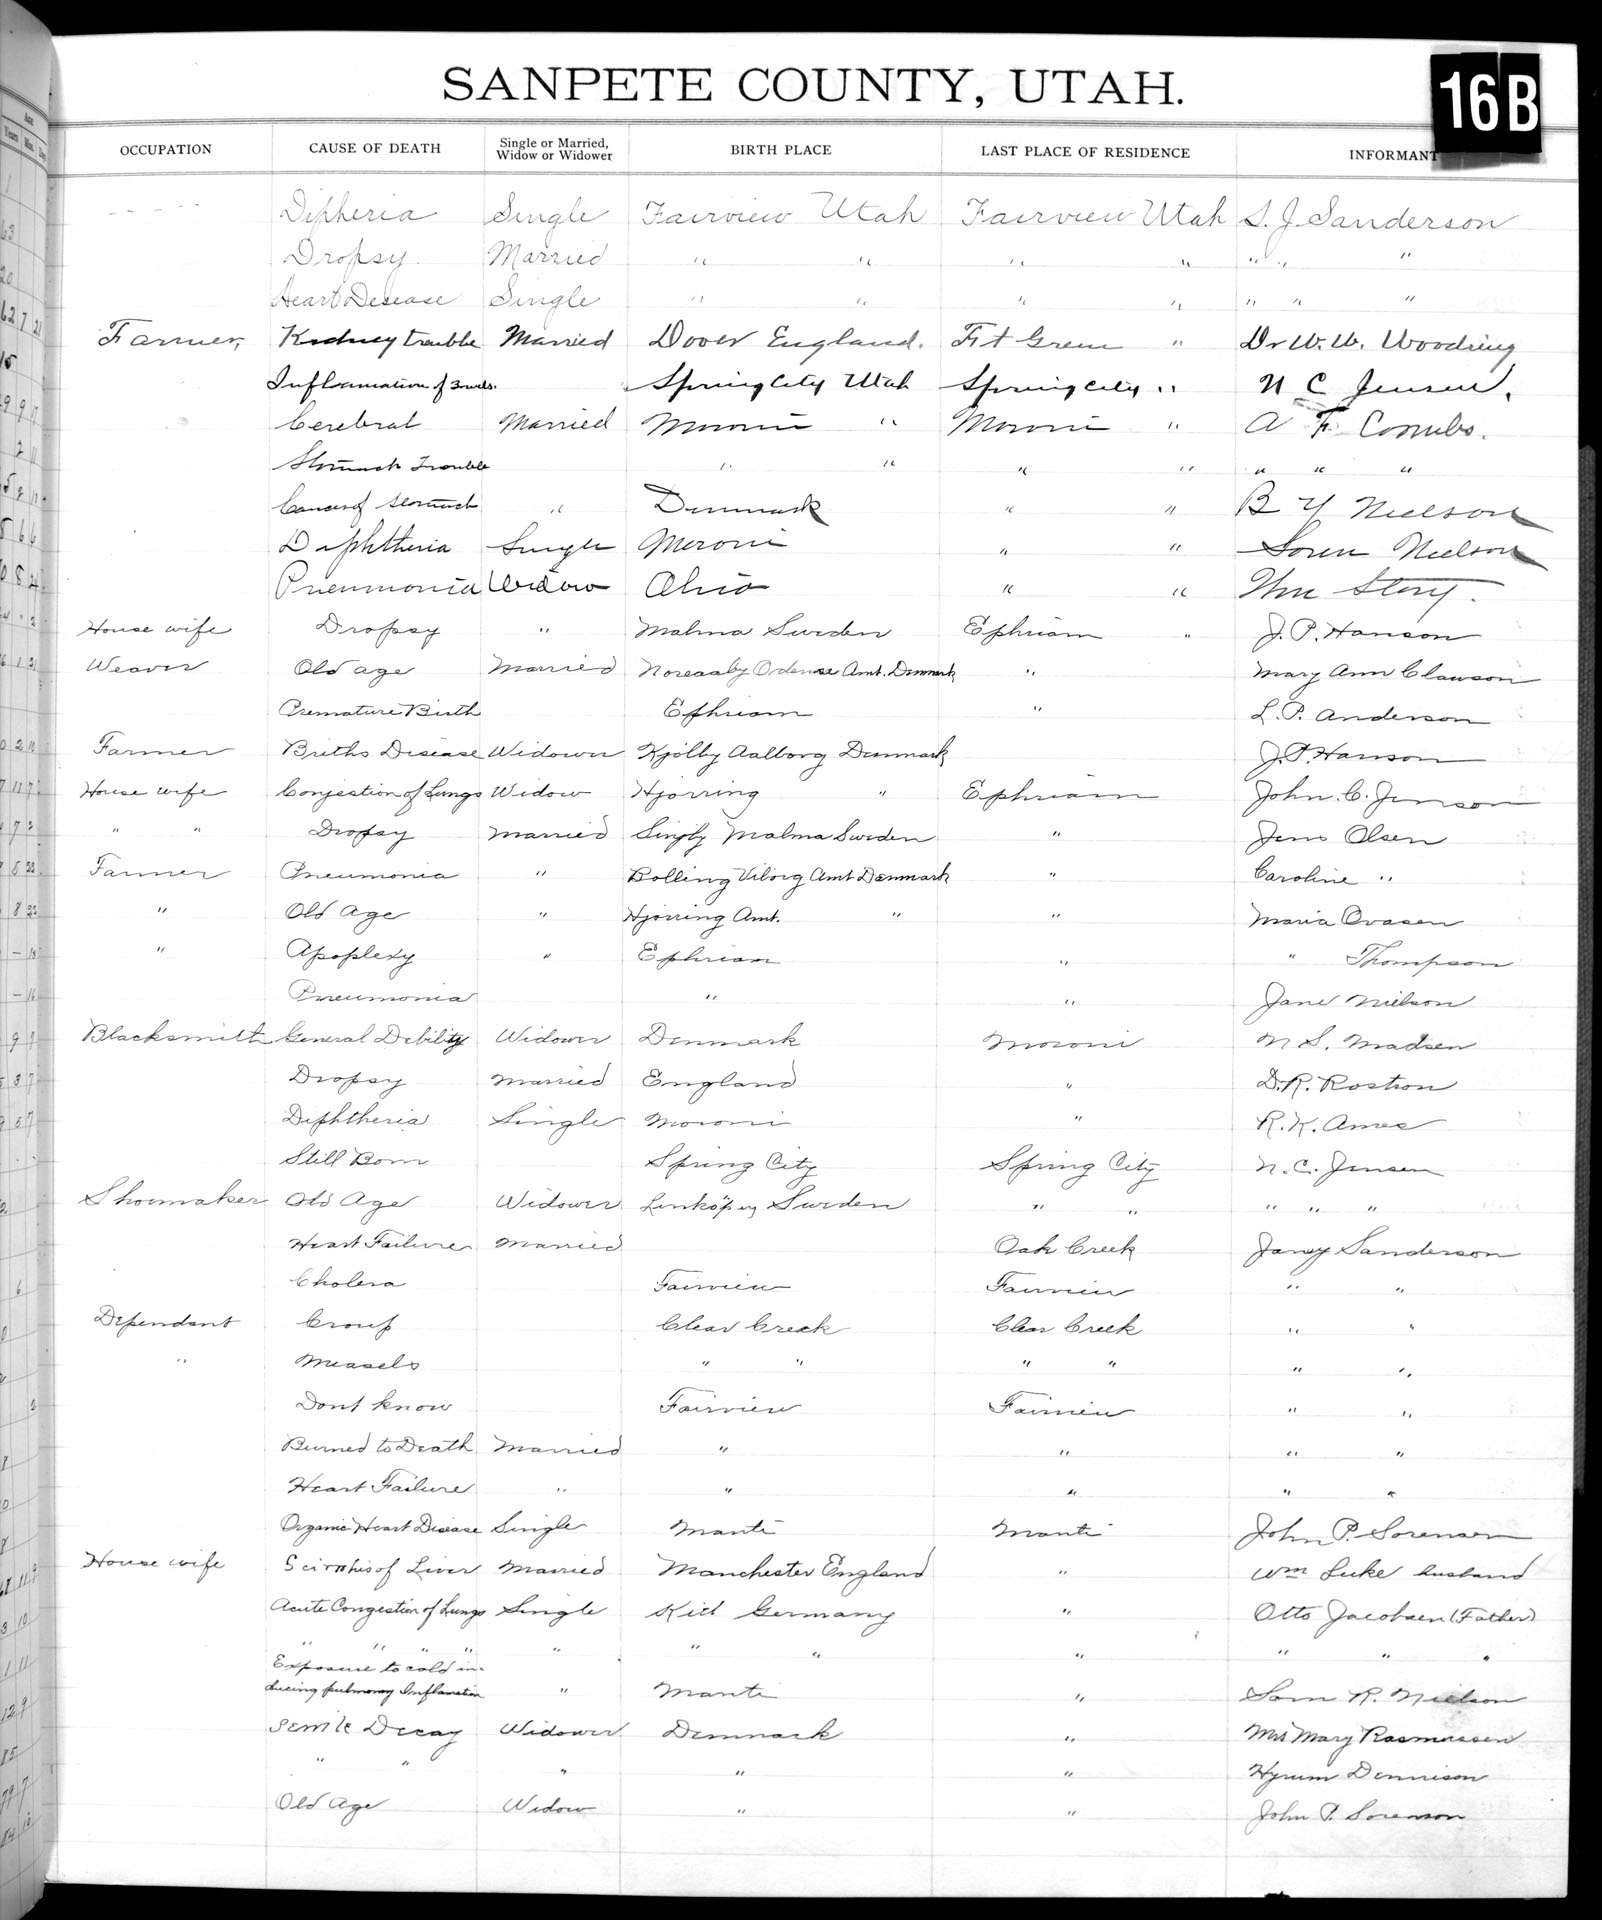 SANPETE COUNTY, UTAH.
16B
OCCUPATION CAUSE OF DEATH Single or Married, Widow or Widower BIRTH PLACE LAST PLACE OF RESIDENCE INFORMANT
- - - - - Diptheria Single Fairview Utah Fairview Utah S. J. Sanderson
Dropsy. Married " " " " " " "
Heart Disease Single " " " " " " "
Farmer, Kidney trouble Married Dover England. Ft Green " Dr W. W. Woodring
Inflamation of Bowels. Spring City Utah Spring City " N C Jensen.
Cerebral Married Moroni " Moroni " A F Combs.
Stomach Trouble " " " " " " "
Cancer of Stomach " Denmark " " B Y Nielson
Diphtheria Single Moroni " " Soren Nielson
Pneumonia Widow Ohio " " Wm Story.
House wife Dropsy " Malma Sweden Ephriam " J. P. Hanson
Weaver Old age Married Amt. Denmark " Mary Ann Clawson
Premature Birth Ephriam " L. P. Anderson
Farmer Briths Disease Widower Kjolby Aalborg Denmark J. P. Hanson
House wife Conjestion of Lungs Widow Hjorring " Ephriam John. C. Jenson
" " Dropsy Married Malma Sweden " Jens Olsen
Farmer Pneumonia " Bolling Viborg Amt Denmark " Caroline "
" Old Age " Hjorring Amt. " " Maria Ovasen
" Apoplexy " Ephriam " " Thompson
Pneumonia " " Jane Nielson
Blacksmith General Debility Widower Denmark Moroni N S. Madsen
Dropsy Married England " D. R. Rostron
Diphtheria Single Moroni " R. K. Ames
Still Born Spring City Spring City N. C. Jensen
Shoemaker Old Age Widower Linköping Sweden " " " " "
Heart Failure Married Oak Creek Sanderson
Cholera Fairview Fairview " "
Dependant Croup Clear Creek Clear Creek " "
" Measels " " " " " "
Dont know Fairview Fairview " "
Burned to Death Married " " " "
Heart Failure " " " " "
Organic Heart Disease Single Manti Manti John P. Sorensen
House wife of Liver Married Manchester England " Wm Luke husband
Acute Congestion of Lungs Single Kiel Germany " Otto Jacobsen (Father)
" " " " " " " " " " "
Exposure to cold in-
ducing pulmonary Inflamation " Manti " R. Nielson
Senile Decay Widower Denmark " Mrs Mary Rasmussen
" " " " " Hyrum Dennison
Old Age Widow " " John P. Sorenson